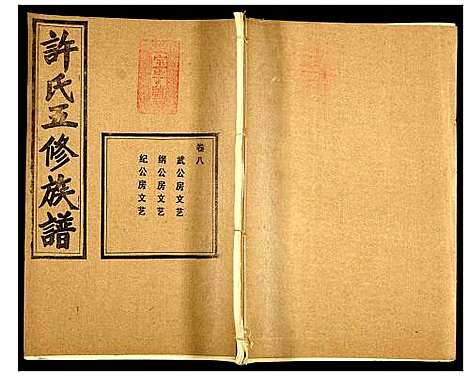 許氏五修族譜
卷八
武公房文艺
纲公房文艺
纪公房文艺